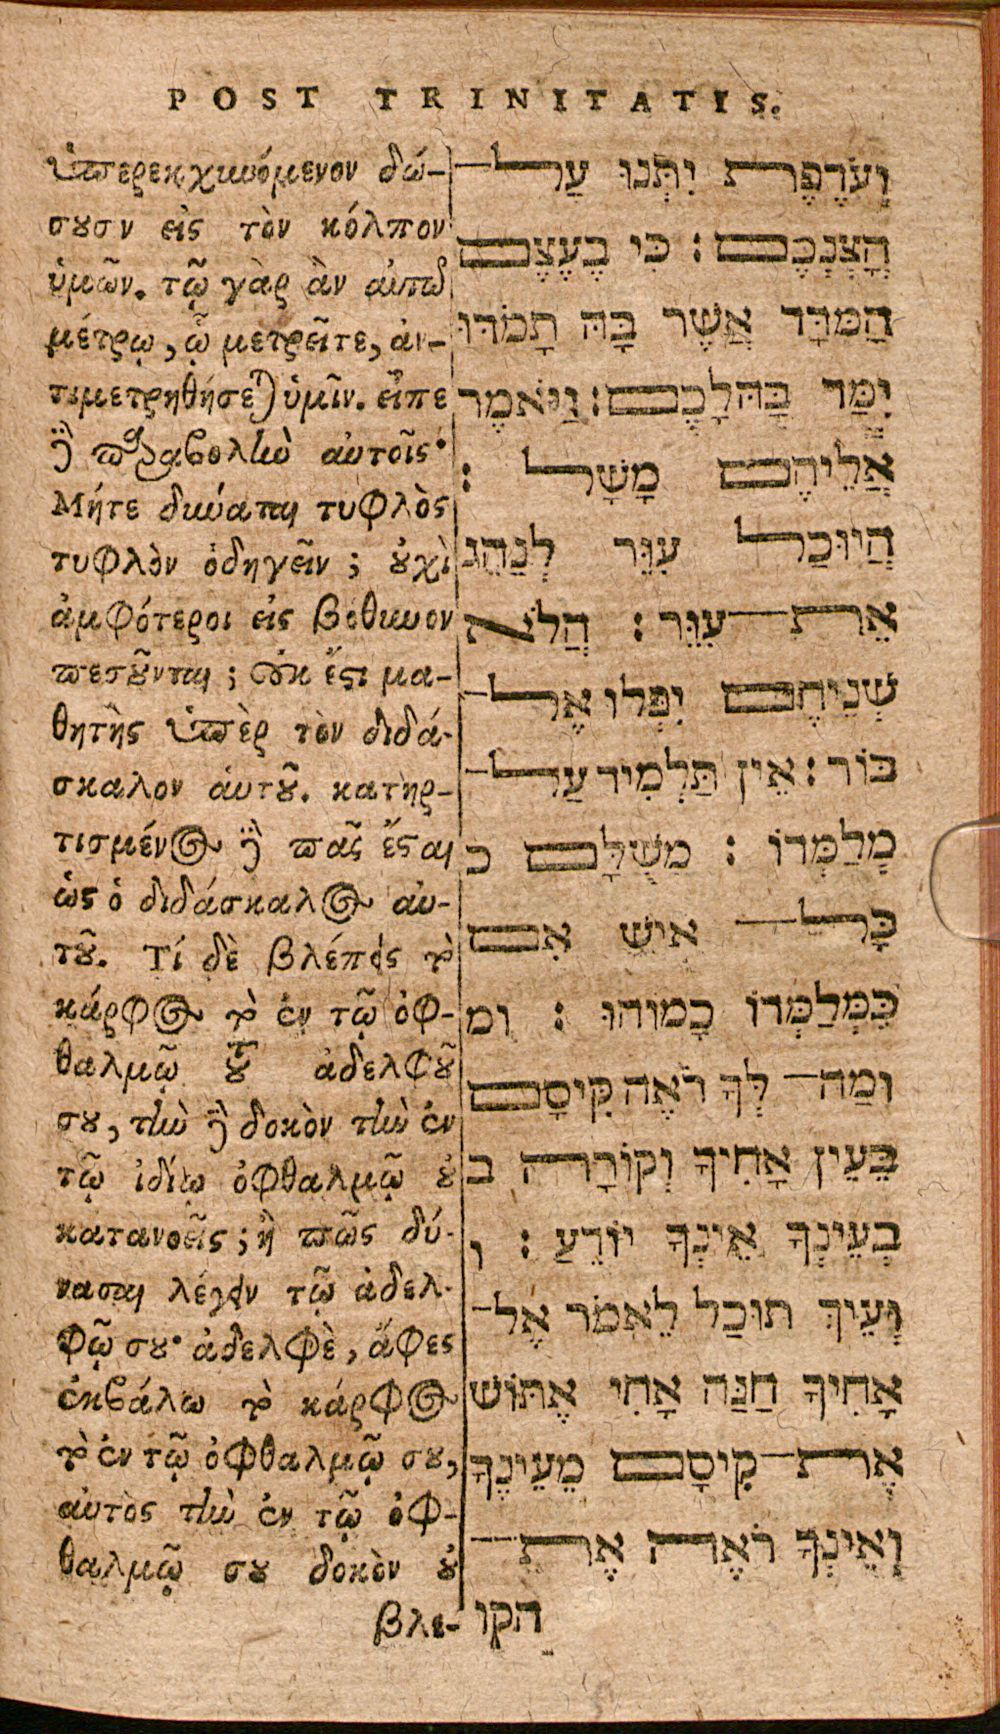 POST TRINITATIS.
ὑπερεκχυνόμενον δώ-
σουσιν εἰς τὸν κόλπον
ὑμῶν. τῷ γὰρ ἂν αὐτῷ
μέτρῳ, ᾧ μετρεῖτε, ἀν-
τιμετρηθήσεται ὑμῖν. εἶπε
δὲ παραβολὴν αὐτοῖς·
Μήτε δύναται τυφλὸς
τυφλὸν ὁδηγεῖν; οὐχὶ
ἀμφότεροι εἰς βόθυνον
πεσοῦνται; Οὐκ ἔστι μα-
θητὴς ὑπὲρ τὸν διδά-
σκαλον αὑτοῦ. κατηρ-
τισμένος δὲ πᾶς ἔσται
ὡς ὁ διδάσκαλος αὐ-
τοῦ. Τί δὲ βλέπεις τὸ
κάρφος τὸ ἐν τῷ ὀφ-
θαλμῷ τοῦ ἀδελφοῦ
σου, τὴν δὲ δοκὸν τὴν ἐν
τῷ ἰδίῳ ὀφθαλμῷ οὐ
κατανοεῖς; ἢ πῶς δύ-
νασαι λέγειν τῷ ἀδελ-
φῷ σου· ἀδελφὲ, ἄφες
ἐκβάλω τὸ κάρφος
τὸ ἐν τῷ ὀφθαλμῷ σου,
αὐτὸς τὴν ἐν τῷ ὀφ-
θαλμῷ σου δοκὸν οὐ
βλε-
וְעֹדֶפֶת יִתְּנוּ עַל־
הֲצְנְכֶם : כִּי בְעֶצֶם
הַמִּדָּד אֲשֶׁר בָּהּ תָמֹדּוּ
יִמַּד בָּהּלָכֶם : וַיֹּאמֶר
אֲלֵיהֶם מָשָׁל :
הֲיוּכַל עִוֵּר לְנַהֵג
אֵת־עִוֵּר : הֲלֹא
שְׁנֵיהֶם יִפְּלוּ אֶל־
בּוֹר : אֵין תַּלְמִיד עַל־
מְלַמְּדוֹ : מֻשְׁלָּם כ
כָּל־ אִישׁ אִם
כִּמְלַמְּדוֹ כָמוֹהוּ : ומ
וּמַה־ לְּךָ רֹאֶה קִּיסָם
בְּעֵין אָחִיךָ וְקוֹרָה ב
בְעֵינְךָ אֵינְךָ יוֹדֵעַ : ו
וְעֵיךְ תּוּכַל לֵאמֹר אֶל־
אָחִיךָ חַנַּה אָחִי אֶתּוֹשׁ
אֶת־קִיסָם מֵעֵינְךָ
וְאֵינְךָ רֹאֶה אֶת־
הקו